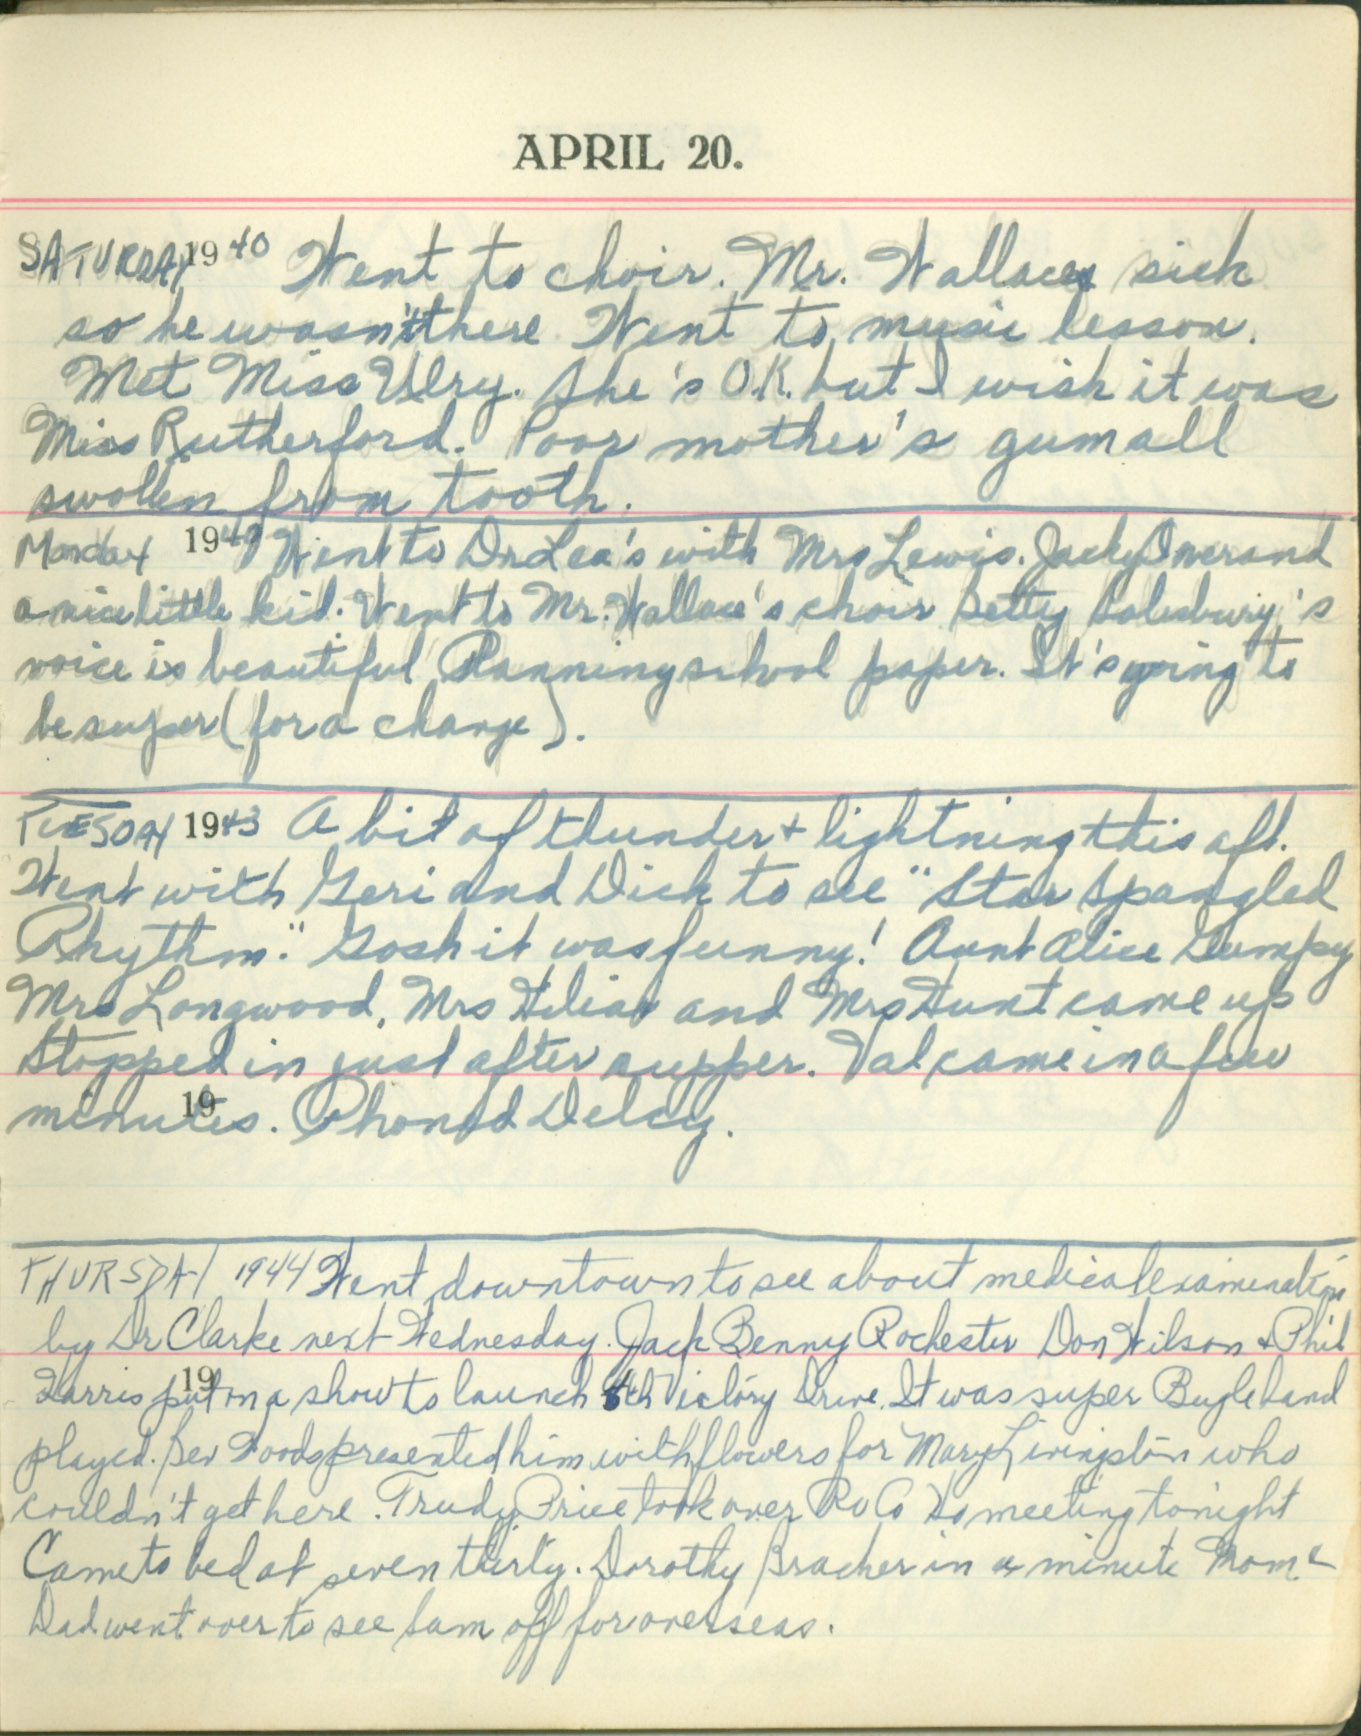 APRIL 20.
SATURDAY 1940 Went to choir. Mr. Wallace sick
so he wasn't there Went to music lesson.
Met Miss Ulry. She's O.K. but I wish it was
Miss Rutherford. Poor mother's gum all
swollen from tooth.
Monday 19 Went to Dr Lea's with Mrs Lewis. Jacky Omer and
a nice little kid. Went to Mr. Wallace's choir Betty Salesbury's
voice is beautiful Planning school paper. It's going to
be super (for a change).
TUESDAY 1943 A bit of thunder + lightning this aft.
Went with Geri and Dick to see "Star Spangled
Rhythm." Gosh it was funny! Aunt Alice Gumpy
Mrs Longwood, Mrs and Mrs Hunt came up
Stopped in just after supper. Val came in a few
19
minutes. Phoned Delcy.
THURSDAY 1944 Went downtown to see about medical examination
by Dr Clarke next Wednesday. Jack Benny Rochester Don Wilson + Phil
19
Harris put on a show to launch 6th Victory Drive. It was super Bugle band
played. Bev Woods presented him with flowers for Mary Livingston who
couldn't get here. Trudy Price took over meeting tonight
Came to bed at seven thirty. Dorothy Bracher in a minute Mom &
Dad went over to see Sam off for overseas.